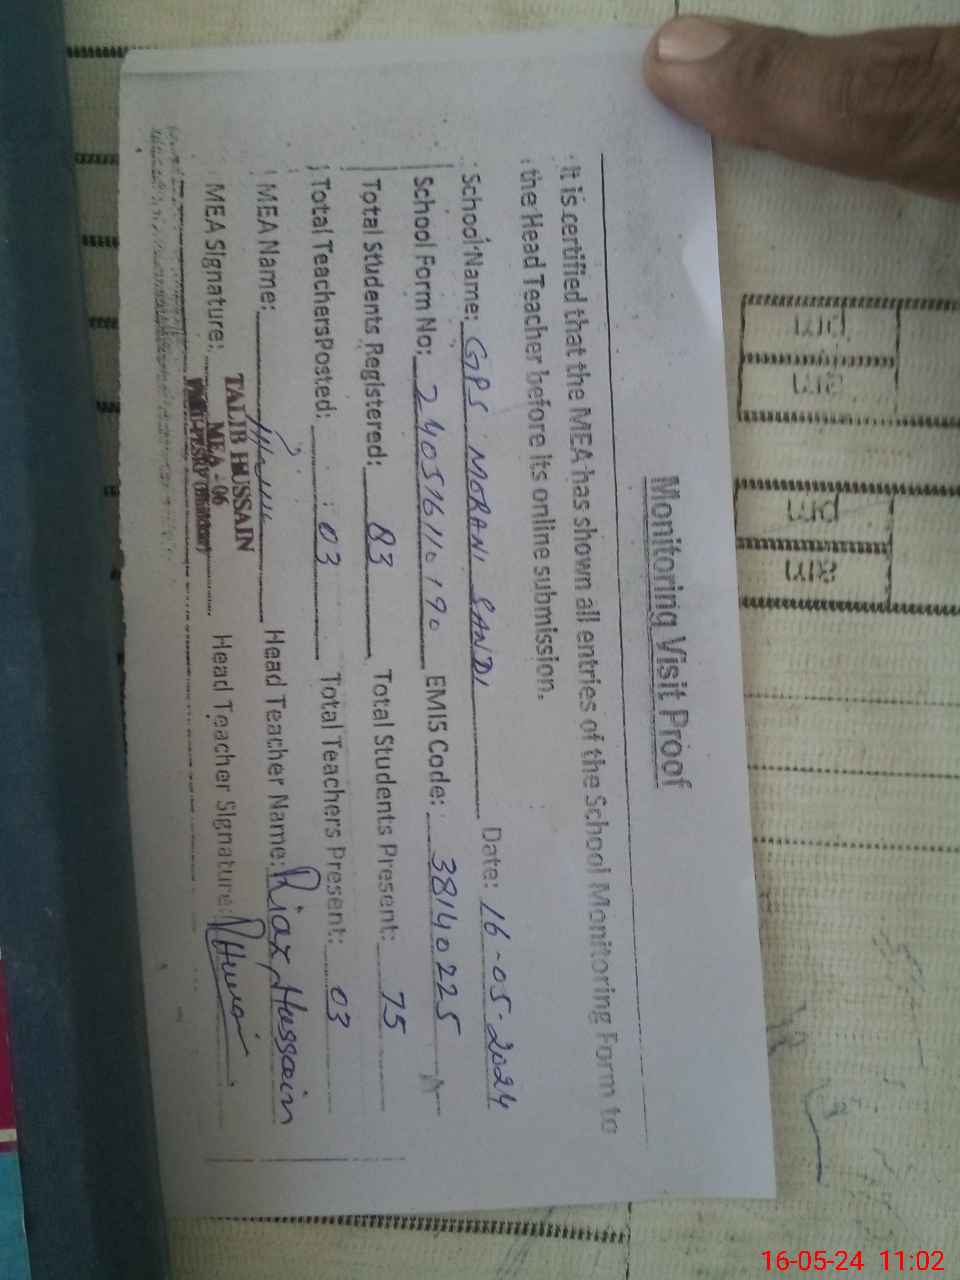 Monitoring Visit Proof
It is certified that the MEA has shown all entries of the School Monitoring Form to
the Head Teacher before its online submission.
School Name: GPS MORANI SANDI Date: 16-05-2024
School Form No: 240516110190 EMIS Code: 38140225
Total Students Registered: 83 Total Students Present: 75
Total Teachers Posted: 03 Total Teachers Present: 03
MEA Name: Head Teacher Name: Riaz Hussain
TALIB HUSSAIN
MEA - 06
MEA Signature: Head Teacher Signature:
16-05-24 11:02